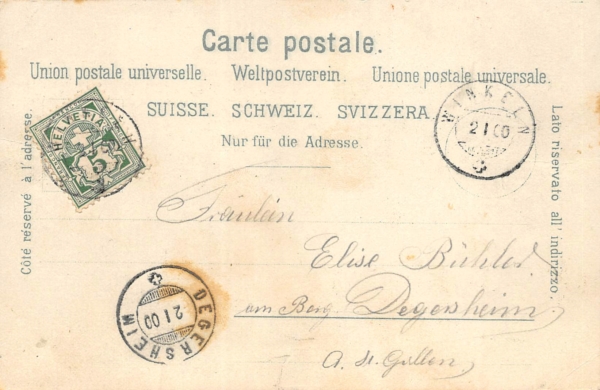 Carte postale.
Union postale universelle. Weltpostverein. Unione postale universale.
SUISSE. SCHWEIZ. SVIZZERA.
Nur für die Adresse.
Côté réservé à l'adresse.
Lato riservato all' indirizzo.
HELVETIA
5
WINKELN
2 I 00
Fräulein
Elise Bühler
am Berg Degersheim
Ct. St. Gallen
DEGERSHEIM
2 I 00